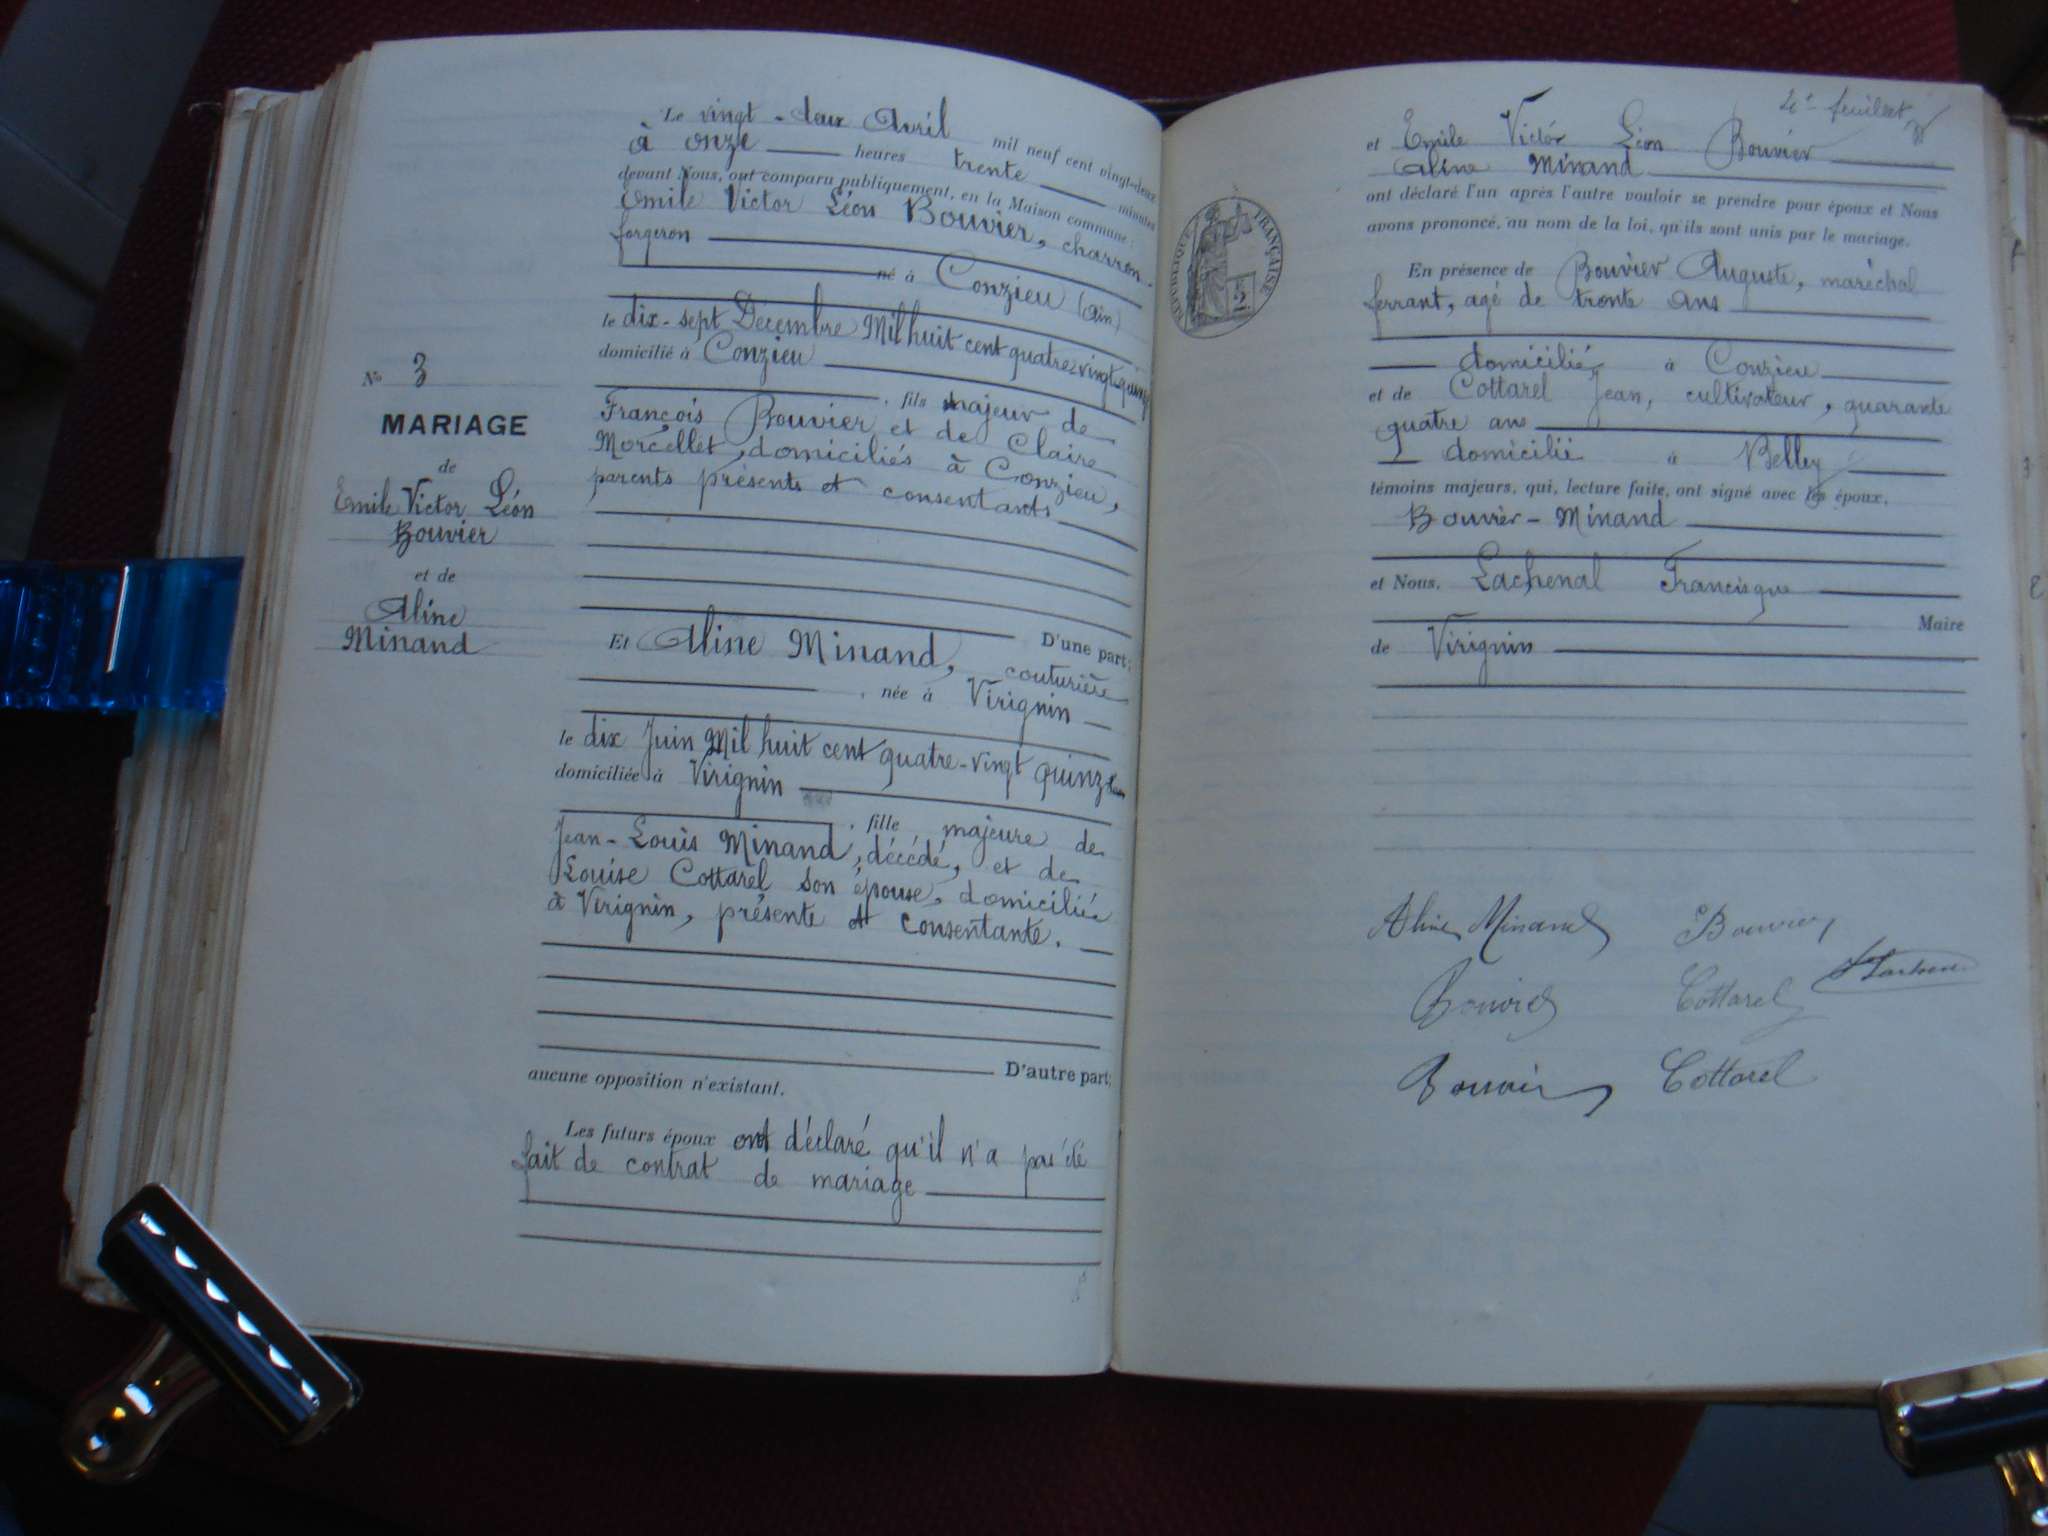 N° 3
MARIAGE
de
Emile Victor Léon
Bouvier
et de
Aline
Minand
Le vingt-deux Avril mil neuf cent vingt-deux
à onze heures trente minutes
devant Nous, ont comparu publiquement, en la Maison commune :
Emile Victor Léon Bouvier, charron-
forgeron
né à Conzieu (Ain)
le dix-sept Décembre Mil huit cent quatre-vingt-quinze
domicilié à Conzieu
, fils majeur de
François Bouvier et de Claire
Morcellet, domiciliés à Conzieu,
parents présents et consentants
D'une part;
Et Aline Minand, couturière
, née à Virignin
le dix Juin Mil huit cent quatre-vingt quinze
domiciliée à Virignin
, fille majeure de
Jean-Louis Minand, décédé, et de
Louise Cottarel son épouse, domiciliée
à Virignin, présente et consentante.
D'autre part;
aucune opposition n'existant.
Les futurs époux ont déclaré qu'il n'a pas été
fait de contrat de mariage
4e feuillet
et Emile Victor Léon Bouvier
Aline Minand
ont déclaré l'un après l'autre vouloir se prendre pour époux et Nous
avons prononcé, au nom de la loi, qu'ils sont unis par le mariage.
RÉPUBLIQUE FRANÇAISE
2
En présence de Bouvier Auguste, maréchal
ferrant, agé de trente ans
domicilié à Conzieu
et de Cottarel Jean, cultivateur, quarante
quatre ans
domicilié à Belley
témoins majeurs, qui, lecture faite, ont signé avec les époux,
Bouvier-Minand
et Nous, Lachenal Francisque
Maire
de Virignin
Aline Minand Bouvier
Bouvier Cottarel
Bouvier Cottarel